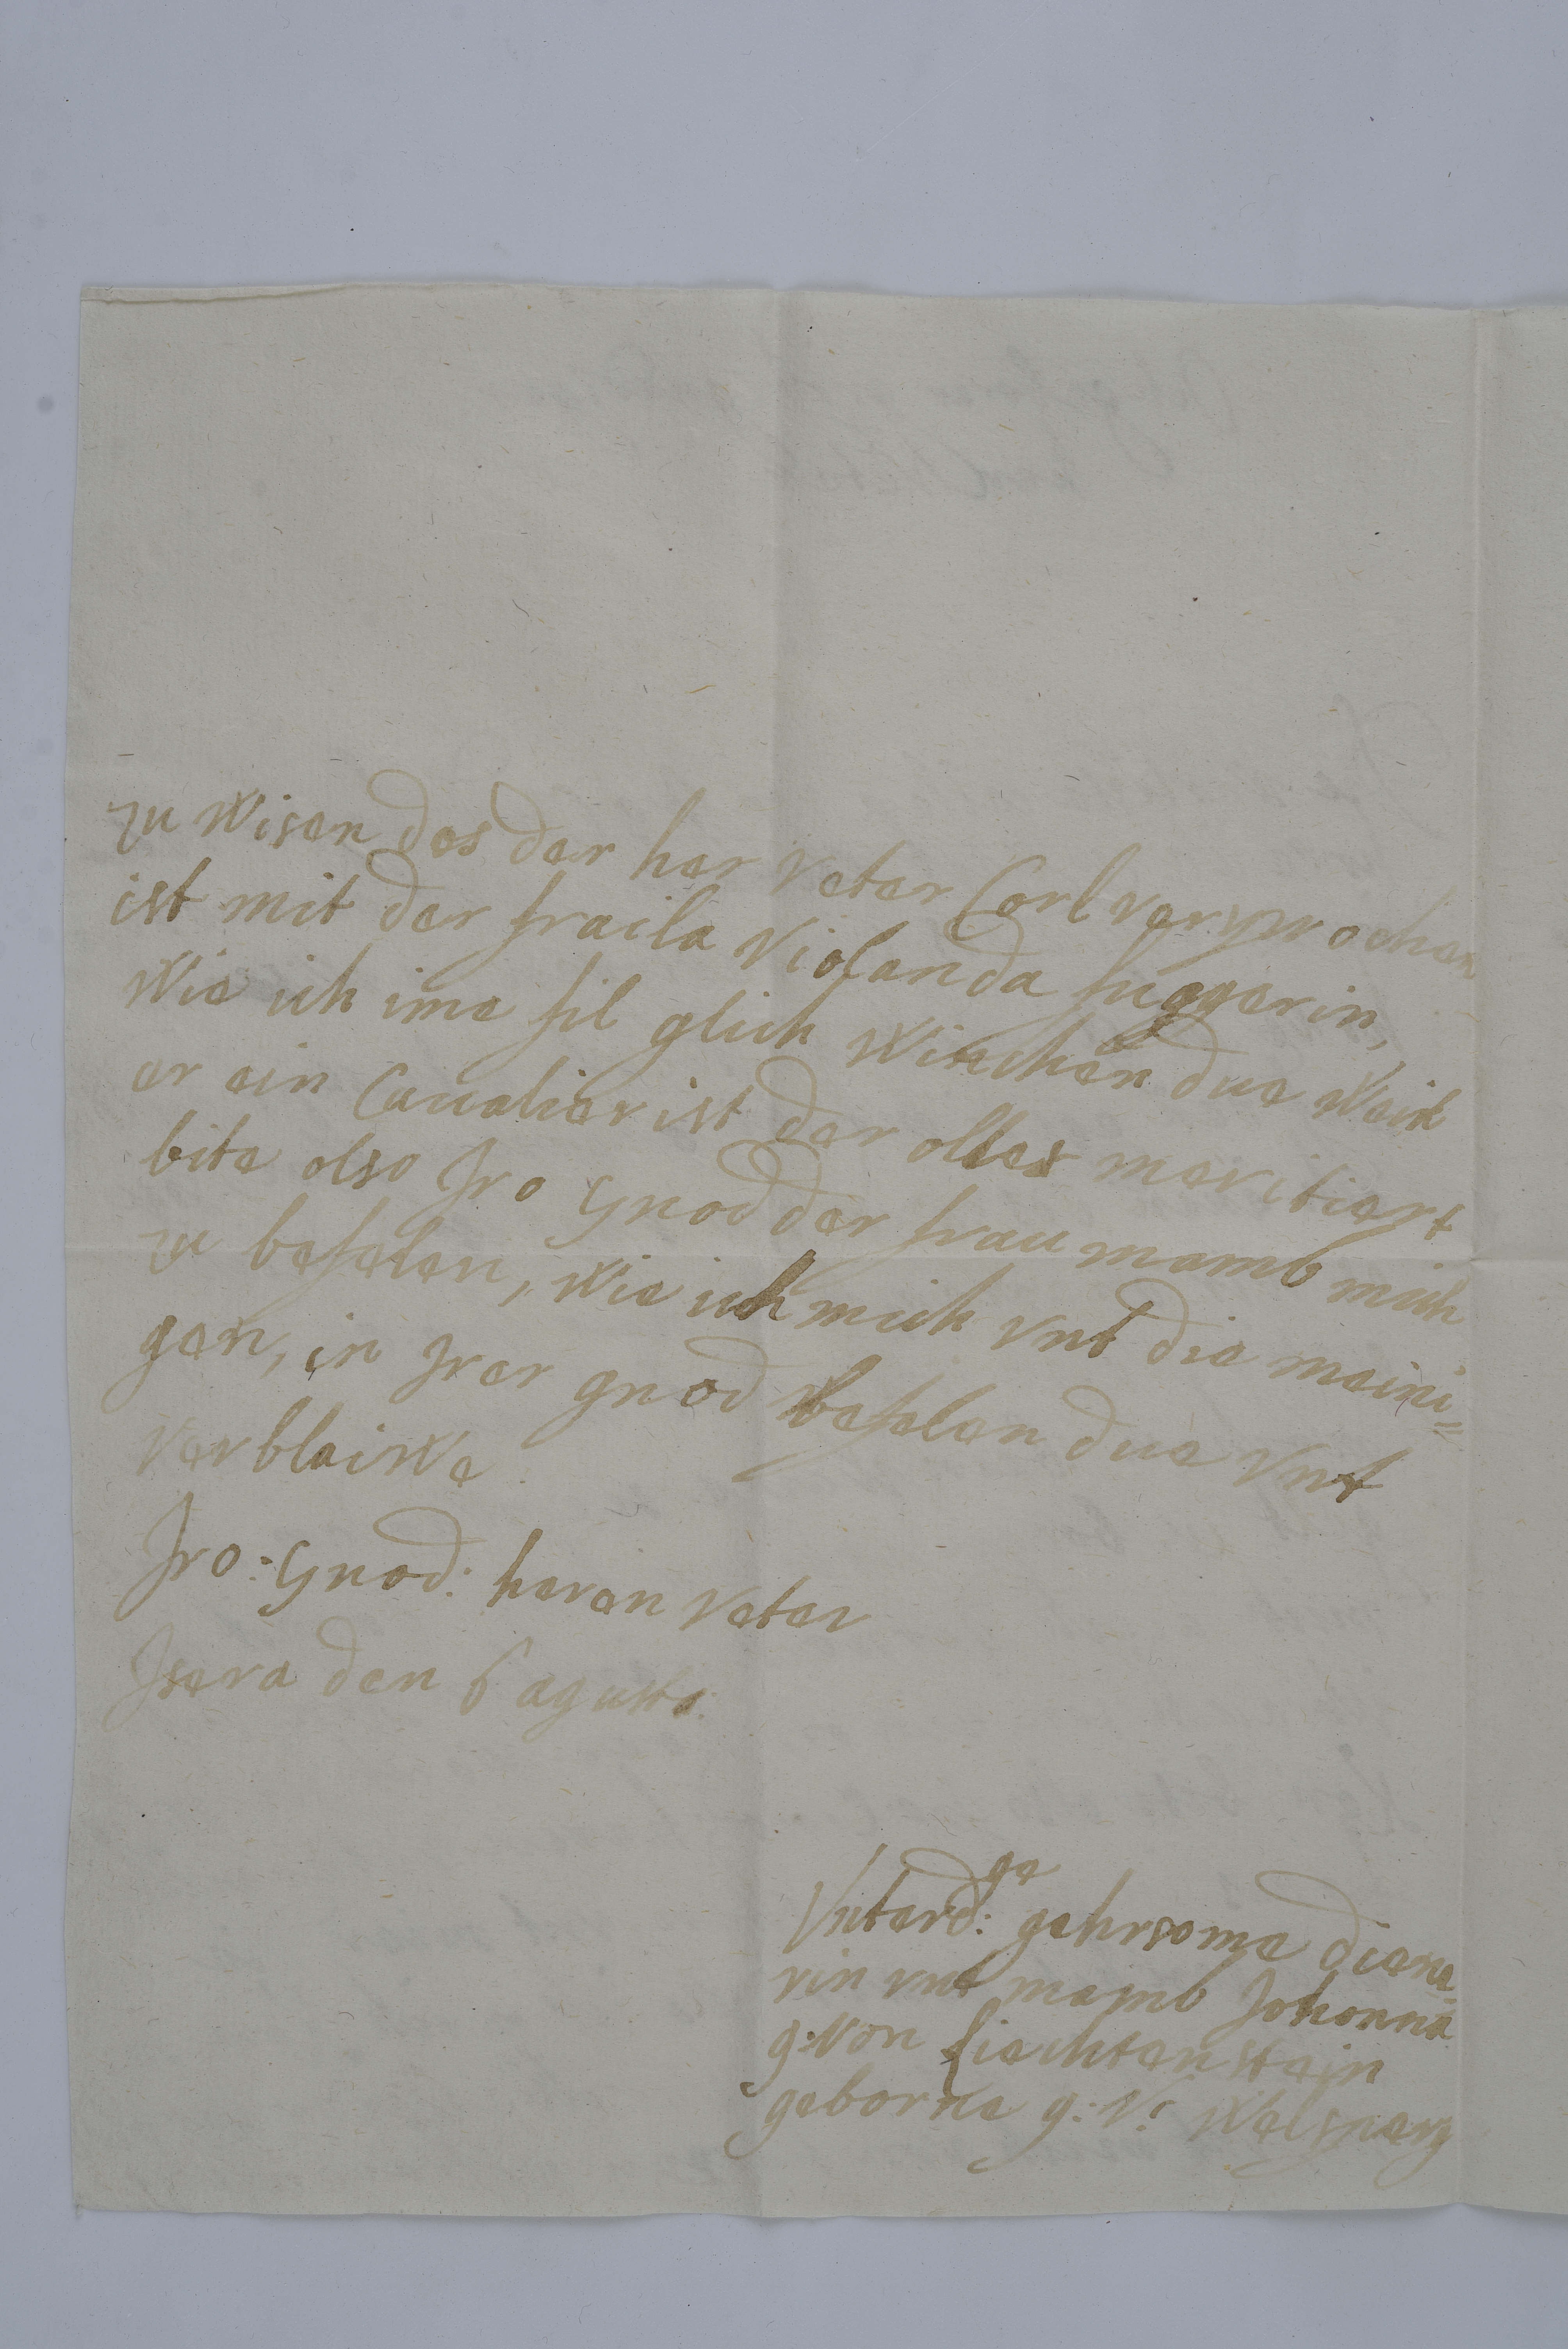 zu wisen das der her veter Carl versprochen
ist mit der fraila Violanda fuggerin,
wie ich ime fil glick winchen due weil
er ein Caualier ist der olles meritiert
bite olso Iro Gnod der frau mamb mich
zu befelen, wie ich mich vnt die meini=
gen, in Irer gnod befelen due vnt
verblaiwe
Iro: Gnod: heren veter
Isera den 6 agusto:
Vnterd:ge gehrsome diene=
rin vnt mamb Johonna
g: von Liechtenstein
geborne g: V: Welsperg